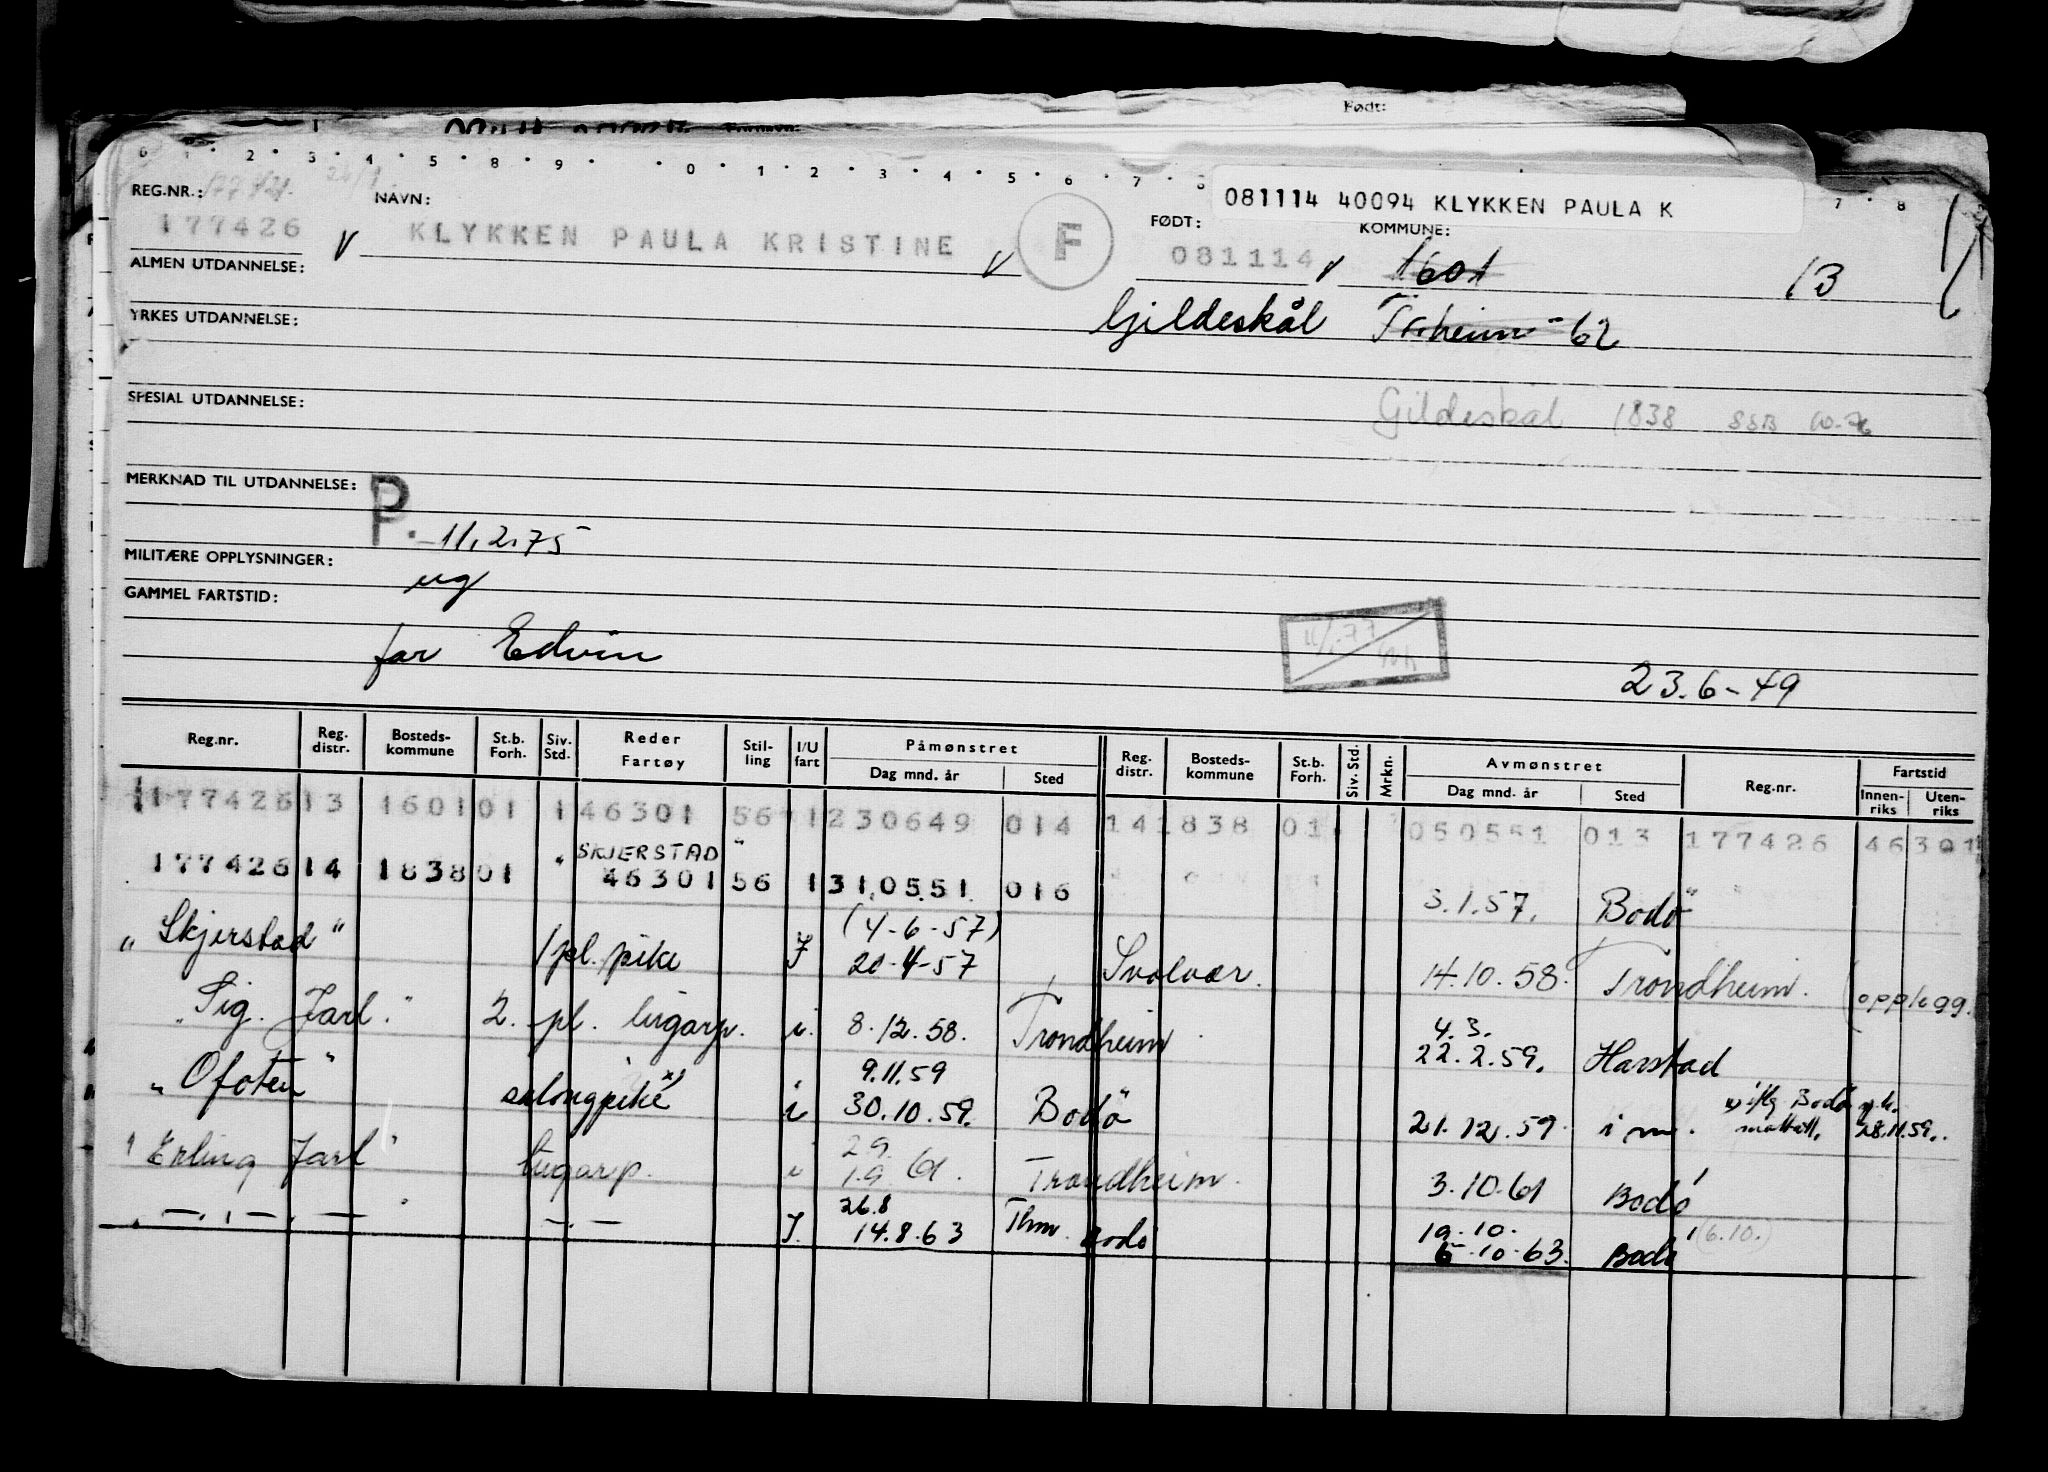 Født:
0 1 2 3 4 5 8 9 0 1 2 3 4 5 6 7 8
7 8
081114 40094 KLYKKEN PAULA K
REG.NR.: NAVN: FØDT: KOMMUNE:
177426 KLYKKEN PAULA KRISTINE F 081114 1601 13
ALMEN UTDANNELSE:
Gjildeskål Tr.heim -62
YRKES UTDANNELSE:
SPESIAL UTDANNELSE: Gildeskal 1838 SSB
MERKNAD TIL UTDANNELSE: P.
11.2.75
MILITÆRE OPPLYSNINGER: ug
GAMMEL FARTSTID:
far Edvin
23.6-49
Reg.nr. Reg. distr. Bosteds-kommune St.b. Forh. Siv. Std. Reder Fartøy Stil-ling I/U fart Påmønstret Dag mnd. år Sted Reg. distr. Bosteds-kommune St.b. Forh. Siv. Std. Mrkn. Avmønstret Dag mnd. år Sted Reg.nr. Fartstid Innen-riks Uten-riks
177426 13 1601 01 1 46301 56 1 230649 014 14 1838 01 050551 013 177426 46301
SKJERSTAD "
177426 14 1838 01 " 46301 56 1 310551 016 3.1.57. Bodø
(4-6-57)
"Skjerstad" 1 pl. pike I 20-4-57 Svolvær. 14.10.58. Trondheim. (opplagg.
4.3.
"Sig. Jarl." 2. pl. lugarp. i. 8.12.58. Trondheim 22.2.59. Harstad
9.11.59
"Ofoten" salongpike x) i 30.10.59. Bodø 21.12.59 i m. x) iflg Bodø m.k. mottatt. 28.11.59.
29.
"Erling Jarl" lugarp. i 1.9.61. Trondheim. 3.10.61 Bodø
26.8 19.10.
" — . — . — " — . — I. 14.8.63 Thm. Bodø 6.10.63. Bodø (6.10.)